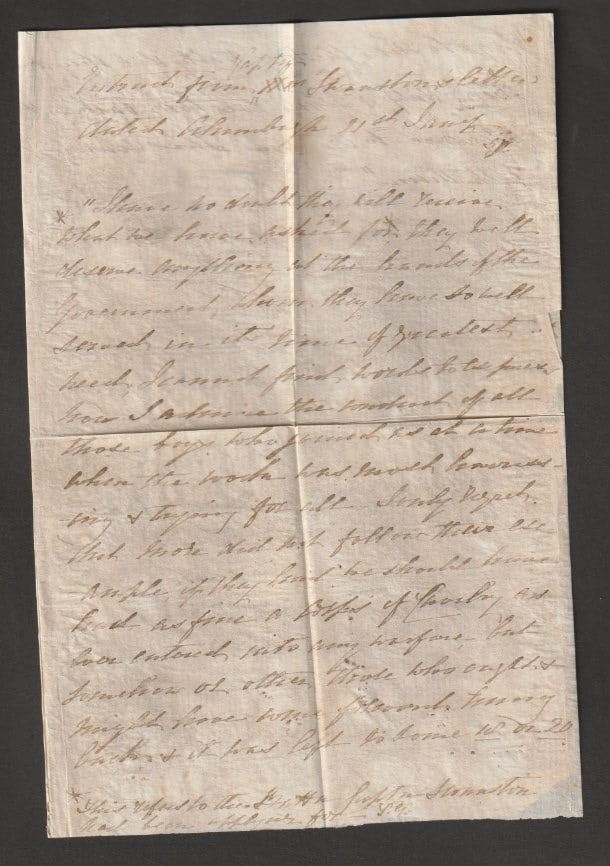 Capt
Extract from Swanston's letter
dated Allumbagh 21st Jany
57.
"I have no doubt they will receive
what we have asked for, they well
deserve anything at the hands of the
Government, whom they have so well
served in its time of greatest
need, I cannot find words to express
how I admire the conduct of all
those boys who joined us at a time
when the work was most harass-
ing & trying for all. I only regret
that more did not follow their ex
ample if they had we should have
had as fine a Corps of Cavalry as
ever entered into any warfare, but
somehow or other, those who ought &
might have come forward hung
back & it was left to some 10 or 20
This refers to the Captn Swanston
had been applying for